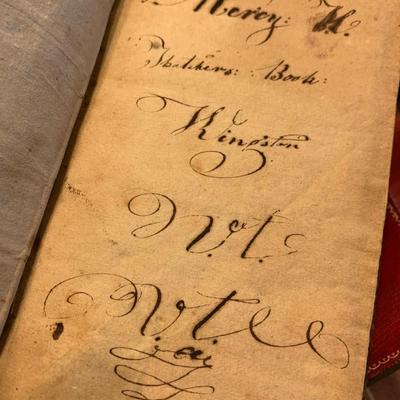 Mercy: H.
Thatchers: Book:
Kingston
V.t.
V.t.